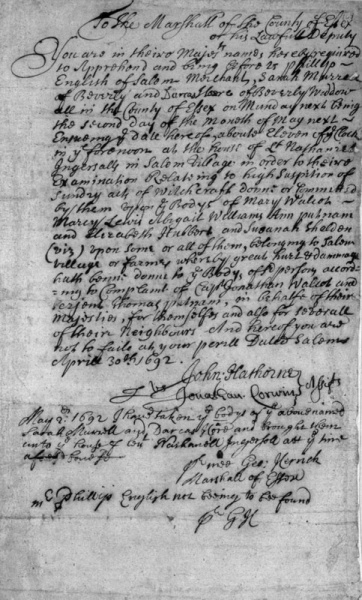 To The Marshall of the County of Essex
or his Lawfull Deputy
You are in theire Majests names hereby required
to Apprehend and bring before us Phillip
English of Salem Merchant, Sarah Murrel
of Beverly and Dorcas Hoare of Beverly Widdow
all in the County of Essex on Munday next being
the second day of the month of May next
Ensueing ye date hereof, about Eleven of ye Clock
in ye forenoon att the house of Lt Nathaniel
Ingersalls in Salem Village in order to theire
Examination Relateing to high Suspition of
Sundry acts of Witchcraft donne or Committed
by them Upon ye Bodys of Mary Walcot
Marcy Lewis Abigail Williams Ann putnam
and Elizabeth Hubbert and Susanah Sheldon
(viz) Upon some or all of them, belonging to Salem
Village or farmes whereby great hurt & dammage
hath benne donne to ye Bodys, of sd persons, accord-
-ing to Complaint of Capt Jonathan Walcot and
Serjent Thomas putnam, in behalfe of their
Majesties, for themselfes and also for severall
of theire Neighbours And hereof you are
not to faile at your perill Dated Salem
Aprill 30th 1692
John Hathorne
Jonathan Corwin Assists
May 2d 1692 I have taken ye bodys of ye above named
Sarah Murrell and Darcas Hore and brought them
unto ye house of Lut Nathaniell Ingersoll att ye time
pr mee Geo: Herrick
Marshall of Essex
mr Phillip English not being to be found
pr GH